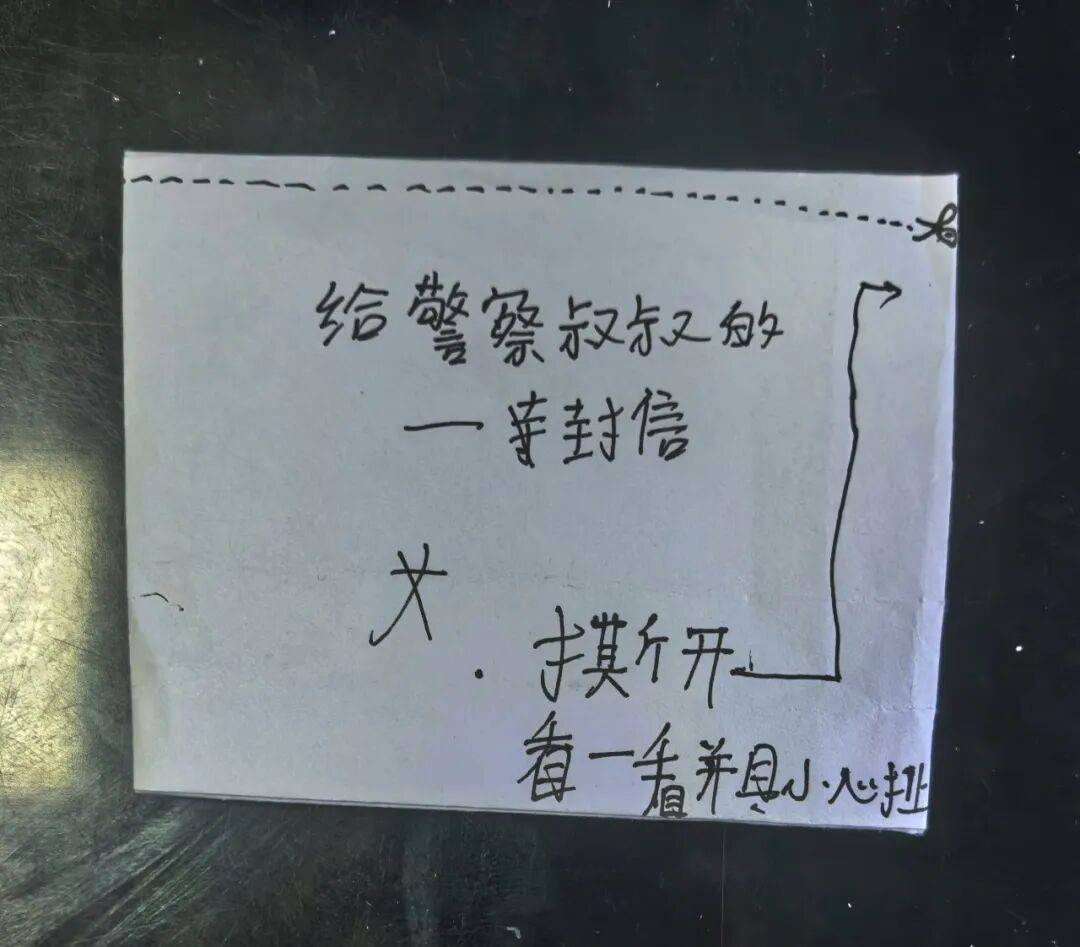 给警察叔叔的
一封信
撕开
看一看并且小心